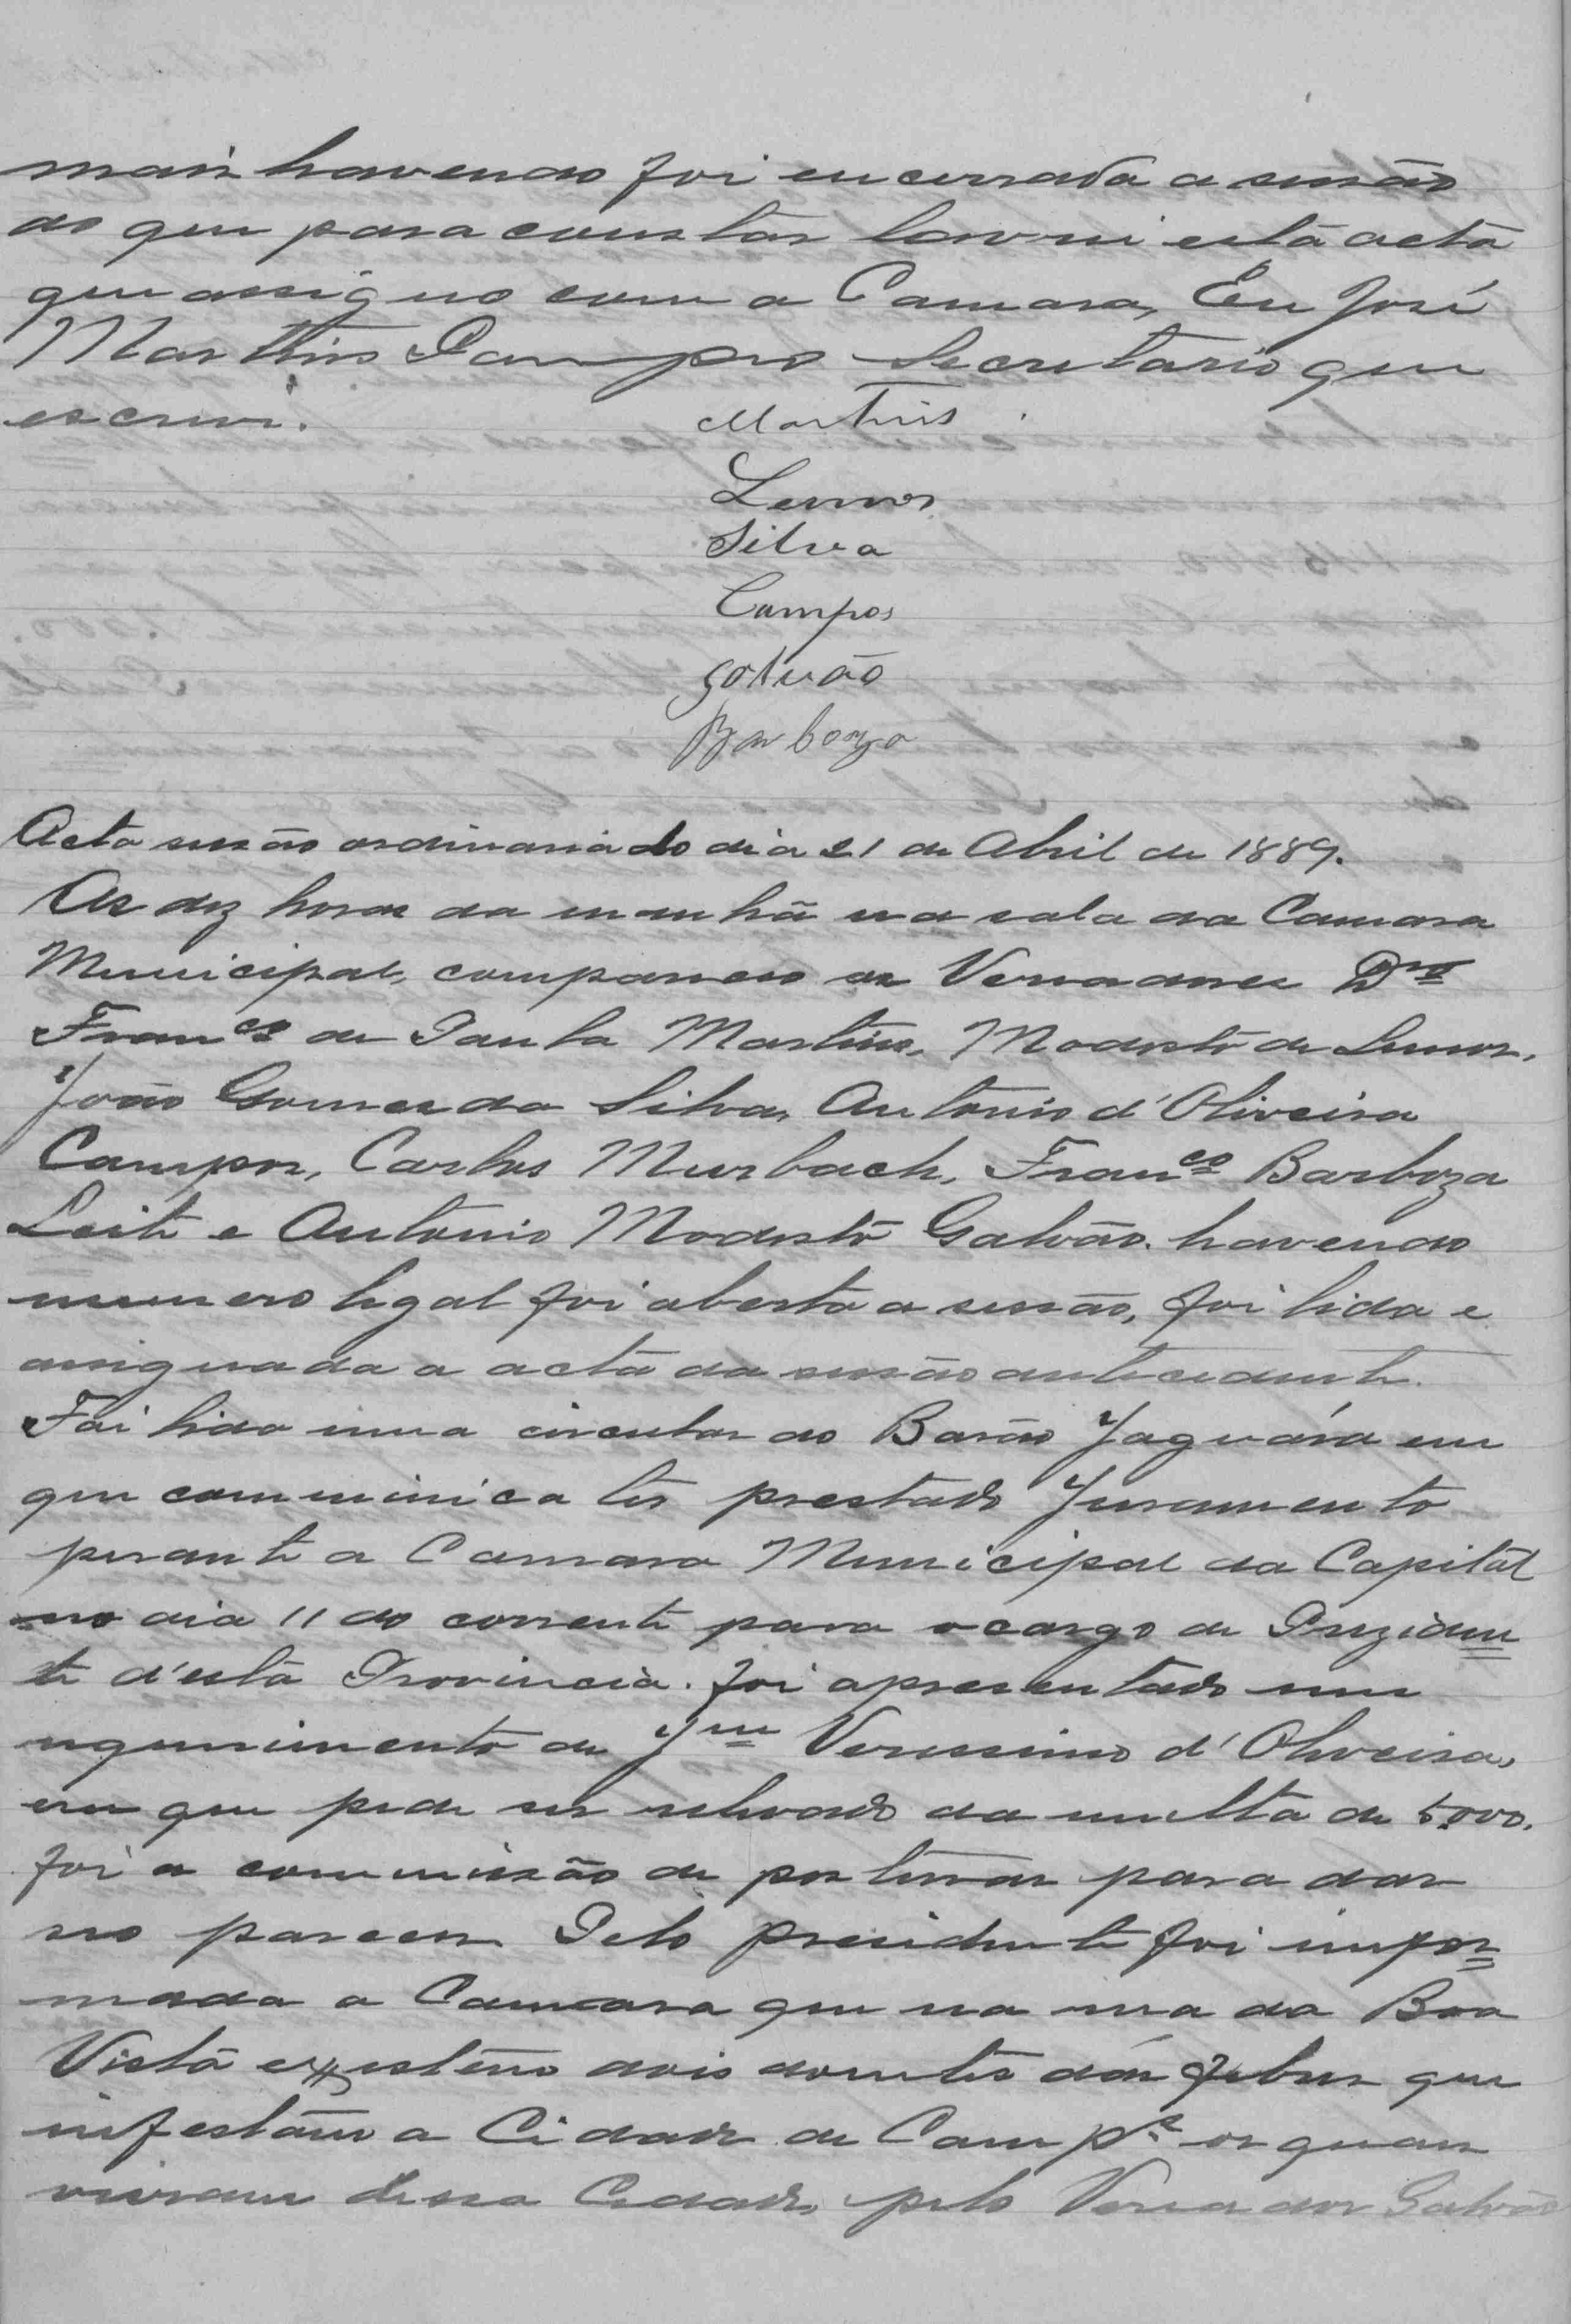 mais havendo foi encerrada a sessão
do que para constar lavrei esta acta
que assigno com a Camara, Eu José
Martins Campos Secretario que
escrevi. Martins
Lemos
Silva
Campos
Galvão
Barboza
Acta sessão ordinaria do dia 21 de Abril de 1889.
As dez horas da manhã na sala da Camara
Municipal, compareceo os Vereadores
Franco de Paula Martins, Modesto de Lemos,
João Gomes da Silva, Antonio d'Oliveira
Campos, Carlos Murbach, Franco Barboza
Leite e Antonio Modesto Galvão. havendo
numero legal foi aberta a sessão, foi lida e
assignada a acta da sessão antecedente.
Foi lida uma circular do Barão Jaguára em
que communica ter prestado Juramento
perante a Camara Municipal da Capital
no dia 11 do corrente para o cargo de Preziden
te d'esta Provincia. foi apresentado um
requerimento de Jm Verissimo d'Oliveira,
em que pede ser relevado da multa de 5.000.
foi a commissão de posturas para dar
seo parecer Pelo presidente foi infor
mada a Camara que na rua da Boa
Vista existem dois doentes das febres que
infestam a Cidade de Camps os quaes
vieram dessa Cidade, pelo Vereador Galvão